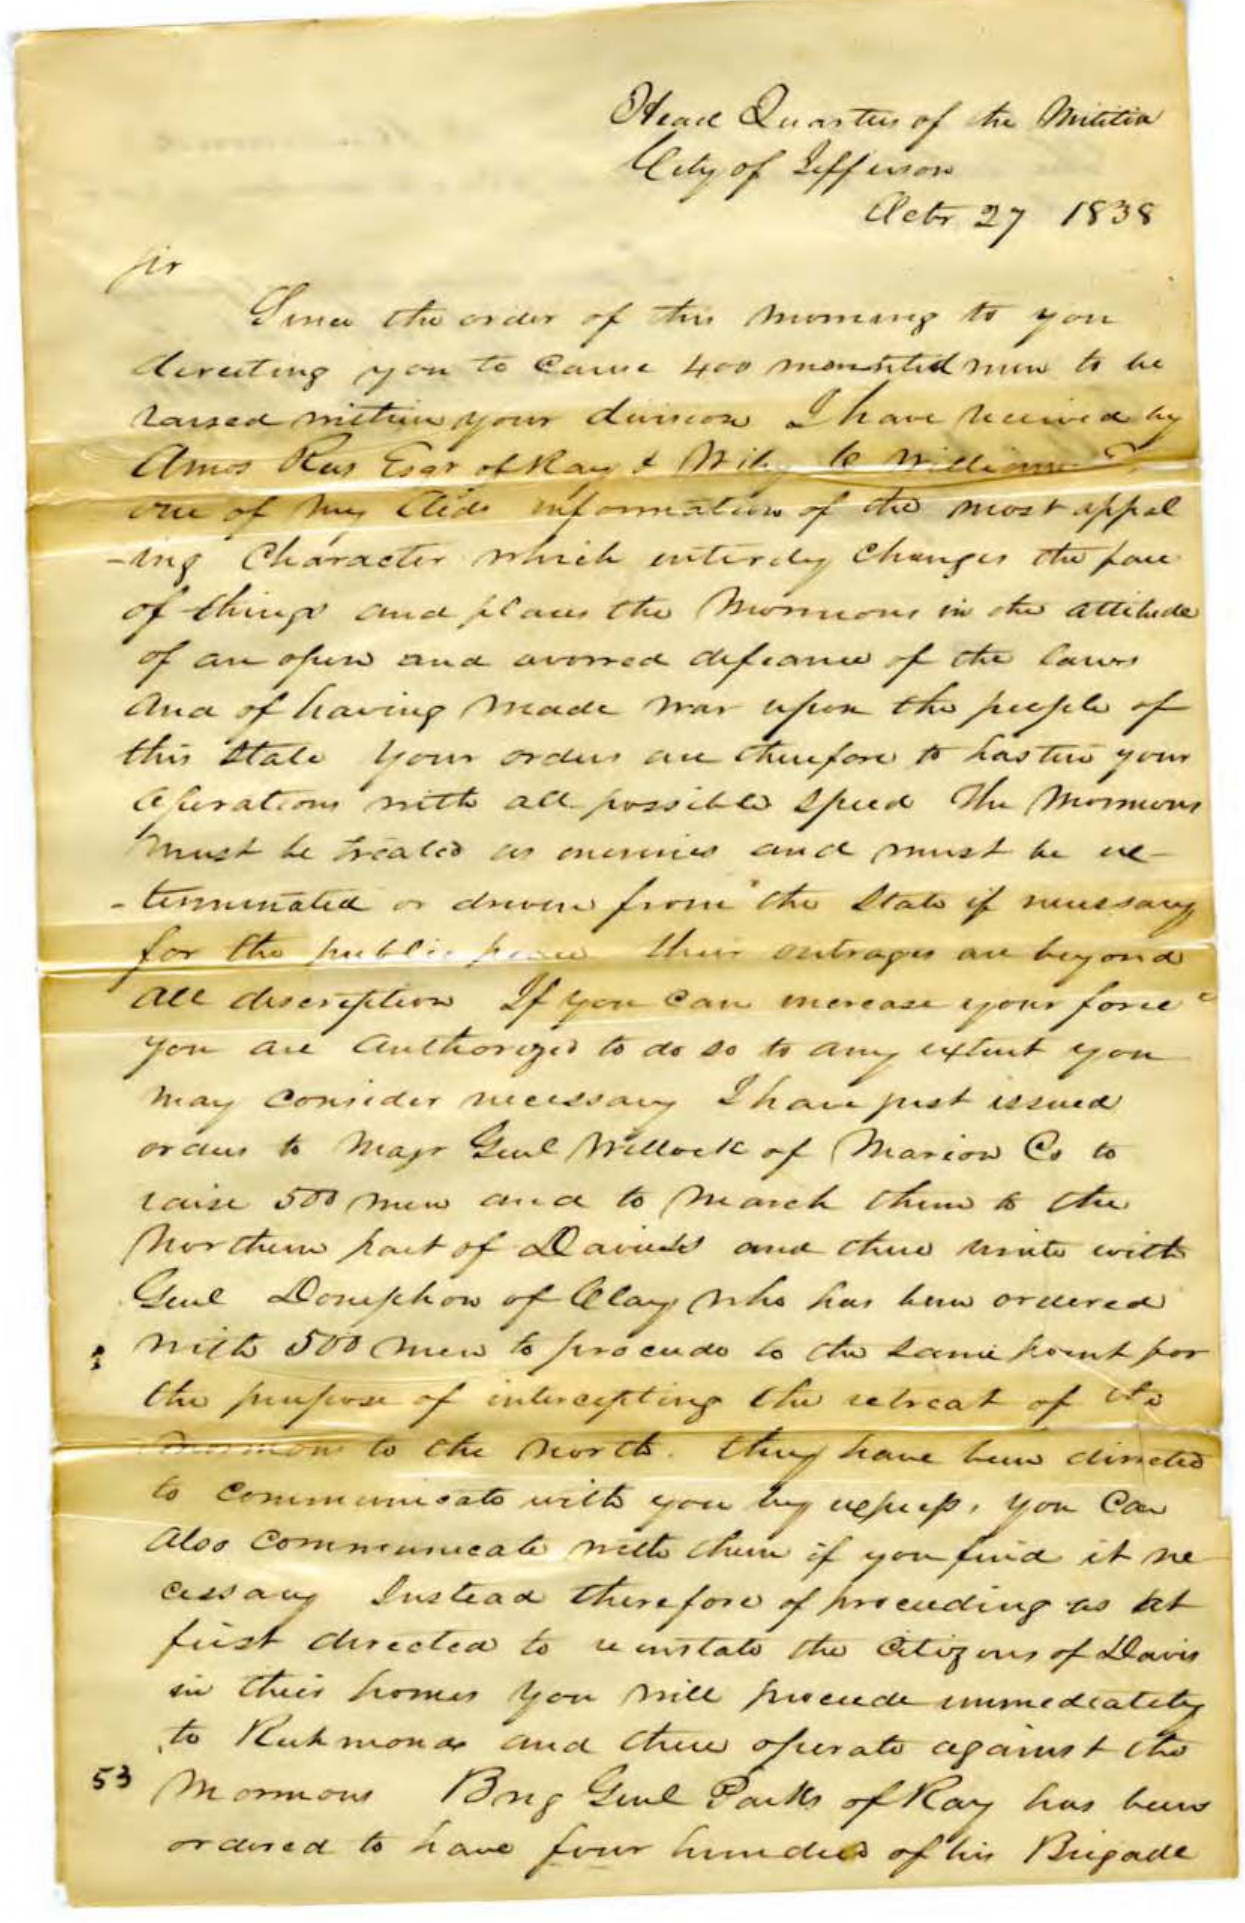 Head Quarters of the Militia
City of Jefferson
Octr 27 1838
Sir
Since the order of this morning to you
directing you to cause 400 mounted men to be
raised within your division I have received by
Amos Rees Esqr of Ray & Wiley C Williams
one of my Aids information of the most appal
-ing Character which enterely changes the face
of things and places the Mormons in the attitude
of an open and avowed defiance of the laws
and of having made war upon the people of
this State Your orders are therefore to hasten your
operations with all possible speed The Mormons
must be treated as enemies and must be ex-
-terminated or driven from the State if necessary
for the public peace their outrages are beyond
all discription If you can increase your force
you are authorized to do so to any extent you
may consider necessary I have just issued
orders to Majr Genl Willock of Marion Co to
raise 500 men and to march them to the
Northern part of Daviess and there unite with
Genl Doniphon of Clay who has been ordered
with 500 men to proceede to the same point for
the purpose of intercepting the retreat of the
Mormons to the North. they have been directed
to communicate with you by express, you can
also communicate with them if you find it ne
cessary Instead therefore of proceeding as at
first directed to reinstate the citizens of Davis
in their homes you will proceede immediately
to Richmond and there operate against the
53 Mormons Brig Genl Parks of Ray has been
ordered to have four hundred of his Brigade